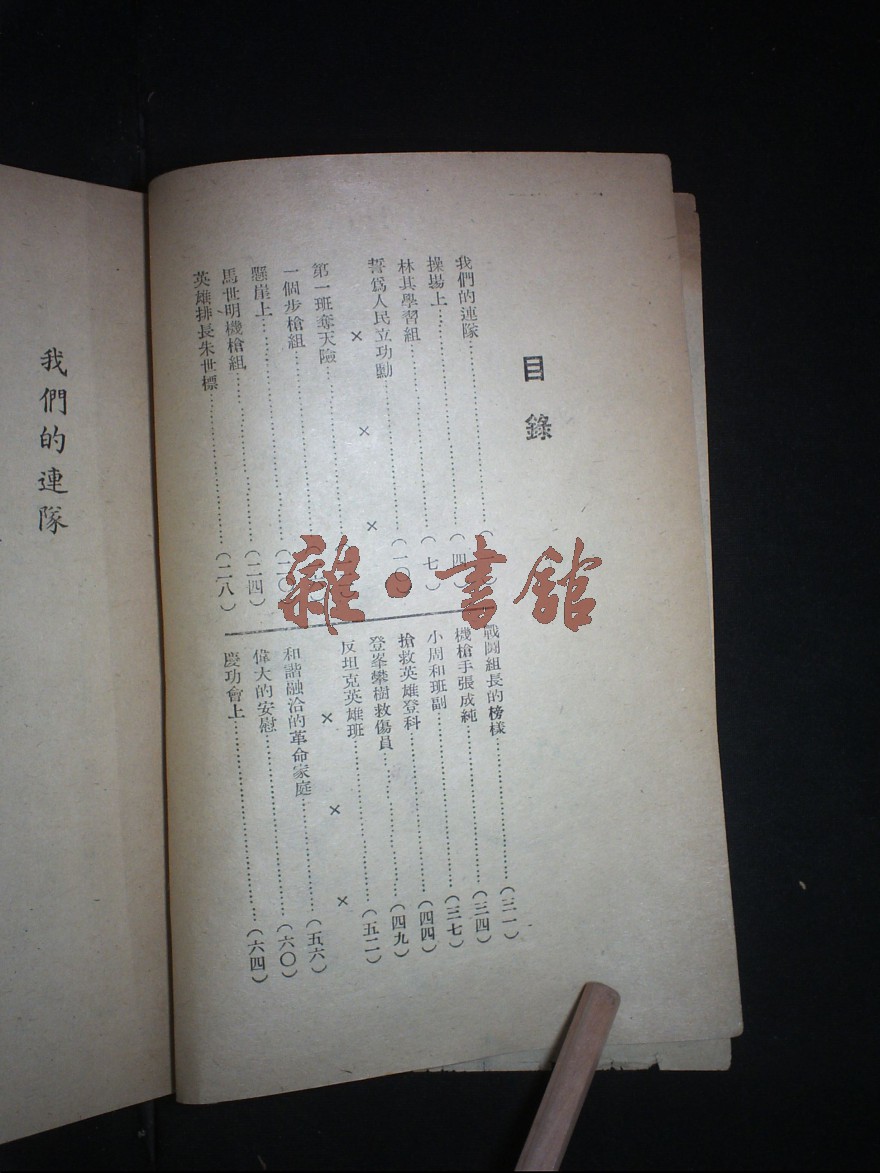 目錄
我們的連隊
操場上……(四)
林其學習組……(七)
誓爲人民立功勳……(一〇)
× × ×
第一班奪天險
一個步槍組
懸崖上……(二〇)
馬世明機槍組……(二四)
英雄排長朱世標……(二八)
戰鬭組長的榜樣……(三一)
機槍手張成純……(三四)
小周和班副……(三七)
搶救英雄登科……(四四)
登峯攀樹救傷員……(四九)
反坦克英雄班……(五二)
× × ×
和諧融洽的革命家庭……(五六)
偉大的安慰……(六〇)
慶功會上……(六四)
我們的連隊
雜·書館